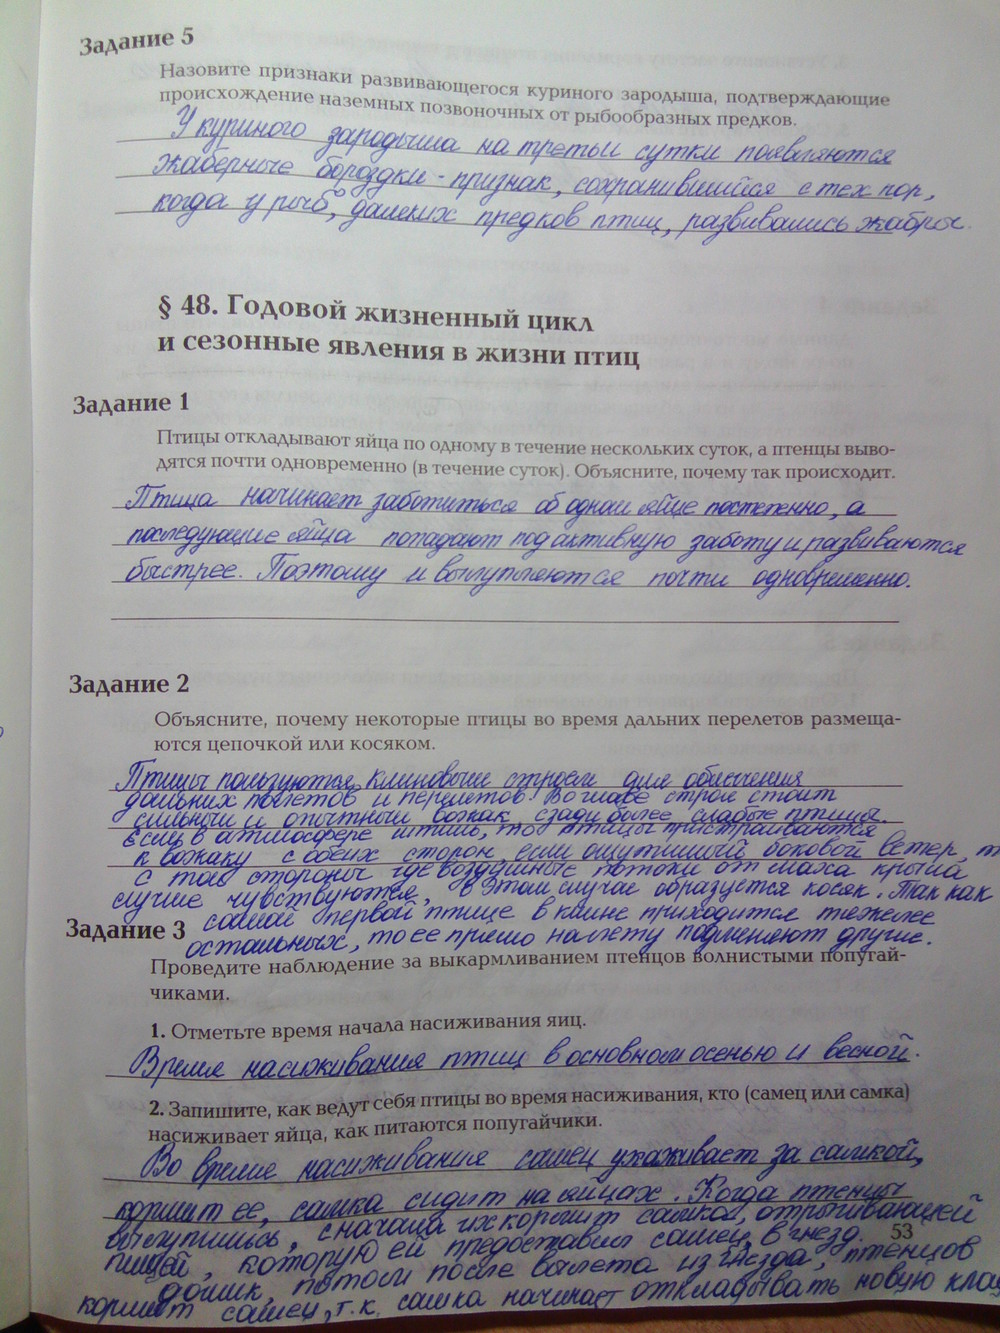 Задание 5
Назовите признаки развивающегося куриного зародыша, подтверждающие
происхождение наземных позвоночных от рыбообразных предков.
У куриного зародыша на третьи сутки появляются
жаберные бороздки - признак, сохранившийся с тех пор,
когда у рыб, далеких предков птиц, развивались жабры.
§ 48. Годовой жизненный цикл
и сезонные явления в жизни птиц
Задание 1
Птицы откладывают яйца по одному в течение нескольких суток, а птенцы выво-
дятся почти одновременно (в течение суток). Объясните, почему так происходит.
Птица начинает заботиться об одном яйце постепенно, а
последующие яйца попадают под активную заботу и развиваются
быстрее. Поэтому и вылупляются почти одновременно.
Задание 2
Объясните, почему некоторые птицы во время дальних перелетов размеща-
ются цепочкой или косяком.
Птицы пользуются клиновым строем для облегчения
дальних полетов и перелетов. Во главе строя стоит
сильный и опытный вожак, сзади более слабые птицы.
Если в атмосфере штиль, то птицы пристраиваются
к вожаку с обеих сторон, если ощутимый боковой ветер, т
с той стороны где воздушные потоки от взмаха крыла
лучше чувствуются, в этом случае образуется косяк. Так как
самой первой птице в клине приходится тяжелее
остальных, то ее прямо на лету подменяют другие.
Задание 3
Проведите наблюдение за выкармливанием птенцов волнистыми попугай-
чиками.
1. Отметьте время начала насиживания яиц.
Время насиживания птиц в основном осенью и весной.
2. Запишите, как ведут себя птицы во время насиживания, кто (самец или самка)
насиживает яйца, как питаются попугайчики.
Во время насиживания самец ухаживает за самкой,
кормит ее, самка сидит на яйцах. Когда птенцы
вылупились, сначала их кормит самка, отрыгивающей
пищей, которую ей предоставил самец в гнезд.
53
домик, потом после вылета из гнезда, птенцов
кормит самец, т.к. самка начинает откладывать новую клад